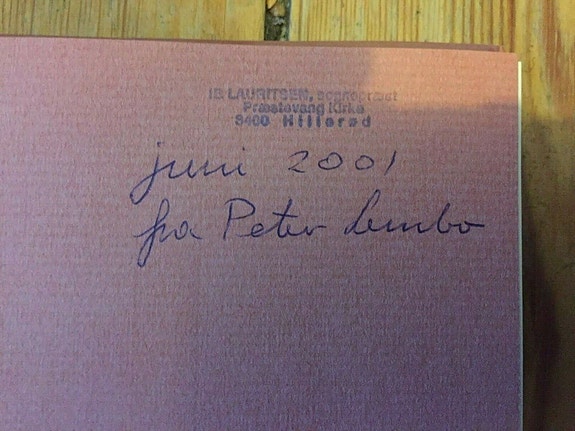 IB LAURITSEN, sognepræst
Præstevang Kirke
3400 Hillerød
juni 2001
fra Peter Lembo